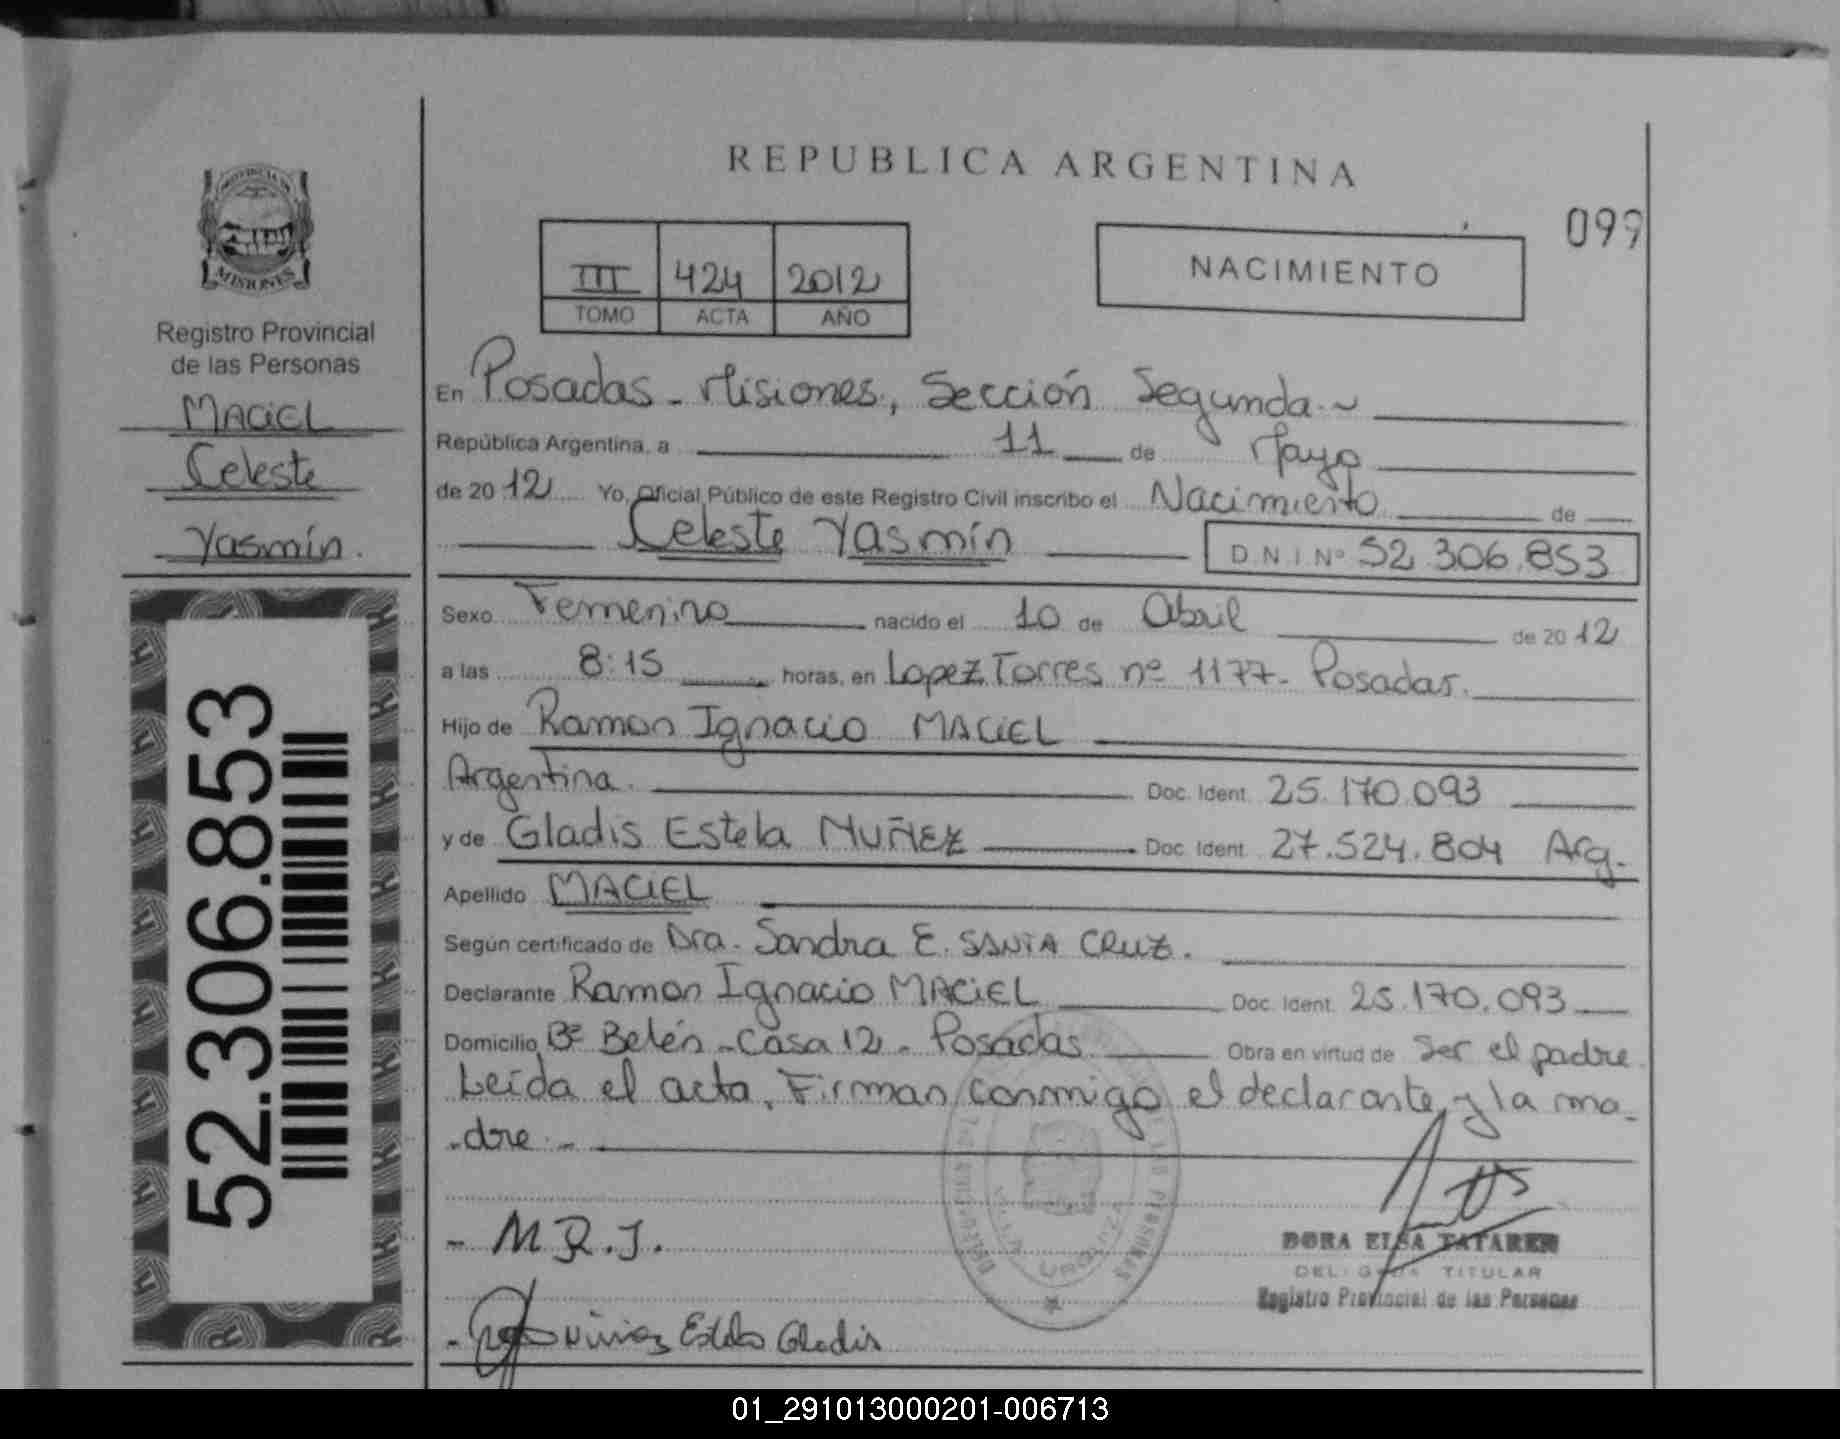 REPUBLICA ARGENTINA
099
PROVINCIA DE
MISIONES
Registro Provincial
de las Personas
MACIEL
Celeste
Yasmín.
52.306.853
III 424 2012
TOMO ACTA AÑO
NACIMIENTO
En Posadas - Misiones, Sección Segunda.~
República Argentina, a 11 de Mayo
de 20 12 Yo, Oficial Público de este Registro Civil inscribo el Nacimiento de
Celeste Yasmín D.N.I. Nº 52.306.853
Sexo Femenino nacido el 10 de Abril de 20 12
a las 8:15 horas, en Lopez Torres nº 1177. Posadas.
Hijo de Ramon Ignacio MACIEL
Argentina. Doc. Ident. 25.170.093
y de Gladis Estela MUÑEZ Doc. Ident. 27.524.804 Arg.
Apellido MACIEL
Según certificado de Dra. Sandra E. SANTA CRUZ.
Declarante Ramon Ignacio MACIEL Doc. Ident. 25.170.093
Domicilio Bº Belén - Casa 12 - Posadas Obra en virtud de Ser el padre
Leída el acta, Firman conmigo el declarante y la ma-
-dre.-
- M R.I.
DORA ELSA
DELEGADA TITULAR
Registro Provincial de las Personas
- Estela Gladis
VILLA URQUIZA
DE LAS PERSONAS
01_291013000201-006713